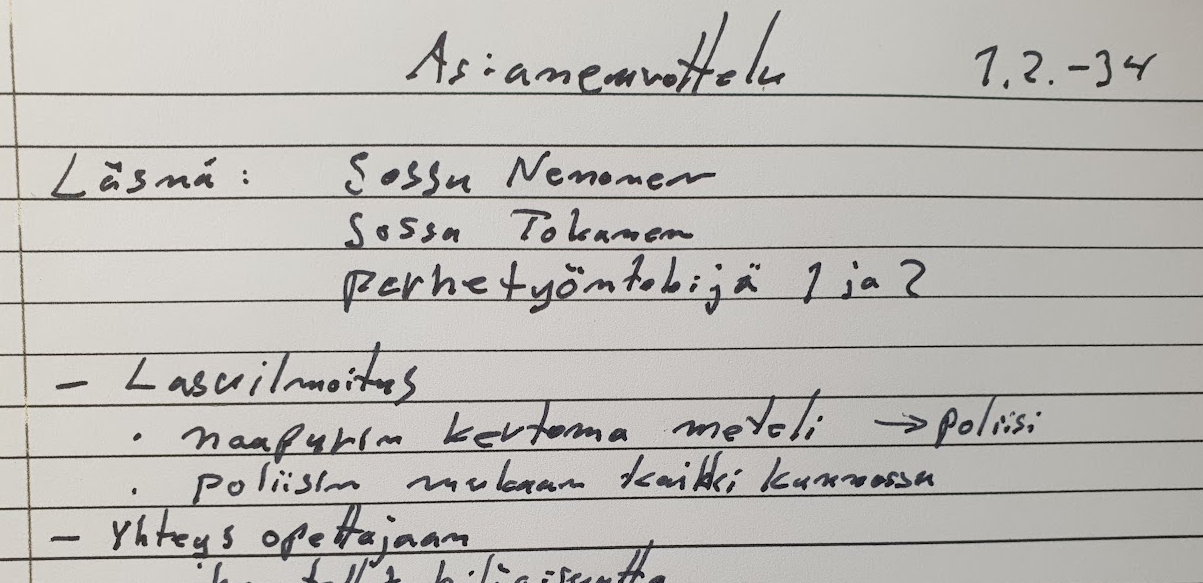 Asianeuvottelu 1.2.-34
Läsnä: Sossu Nemonen
Sossu Tokanen
perhetyöntekijä 1 ja 2
- Lasuilmoitus
· naapurin kertoma meteli → poliisi
· poliisin mukaan kaikki kunnossa
- Yhteys opettajaan